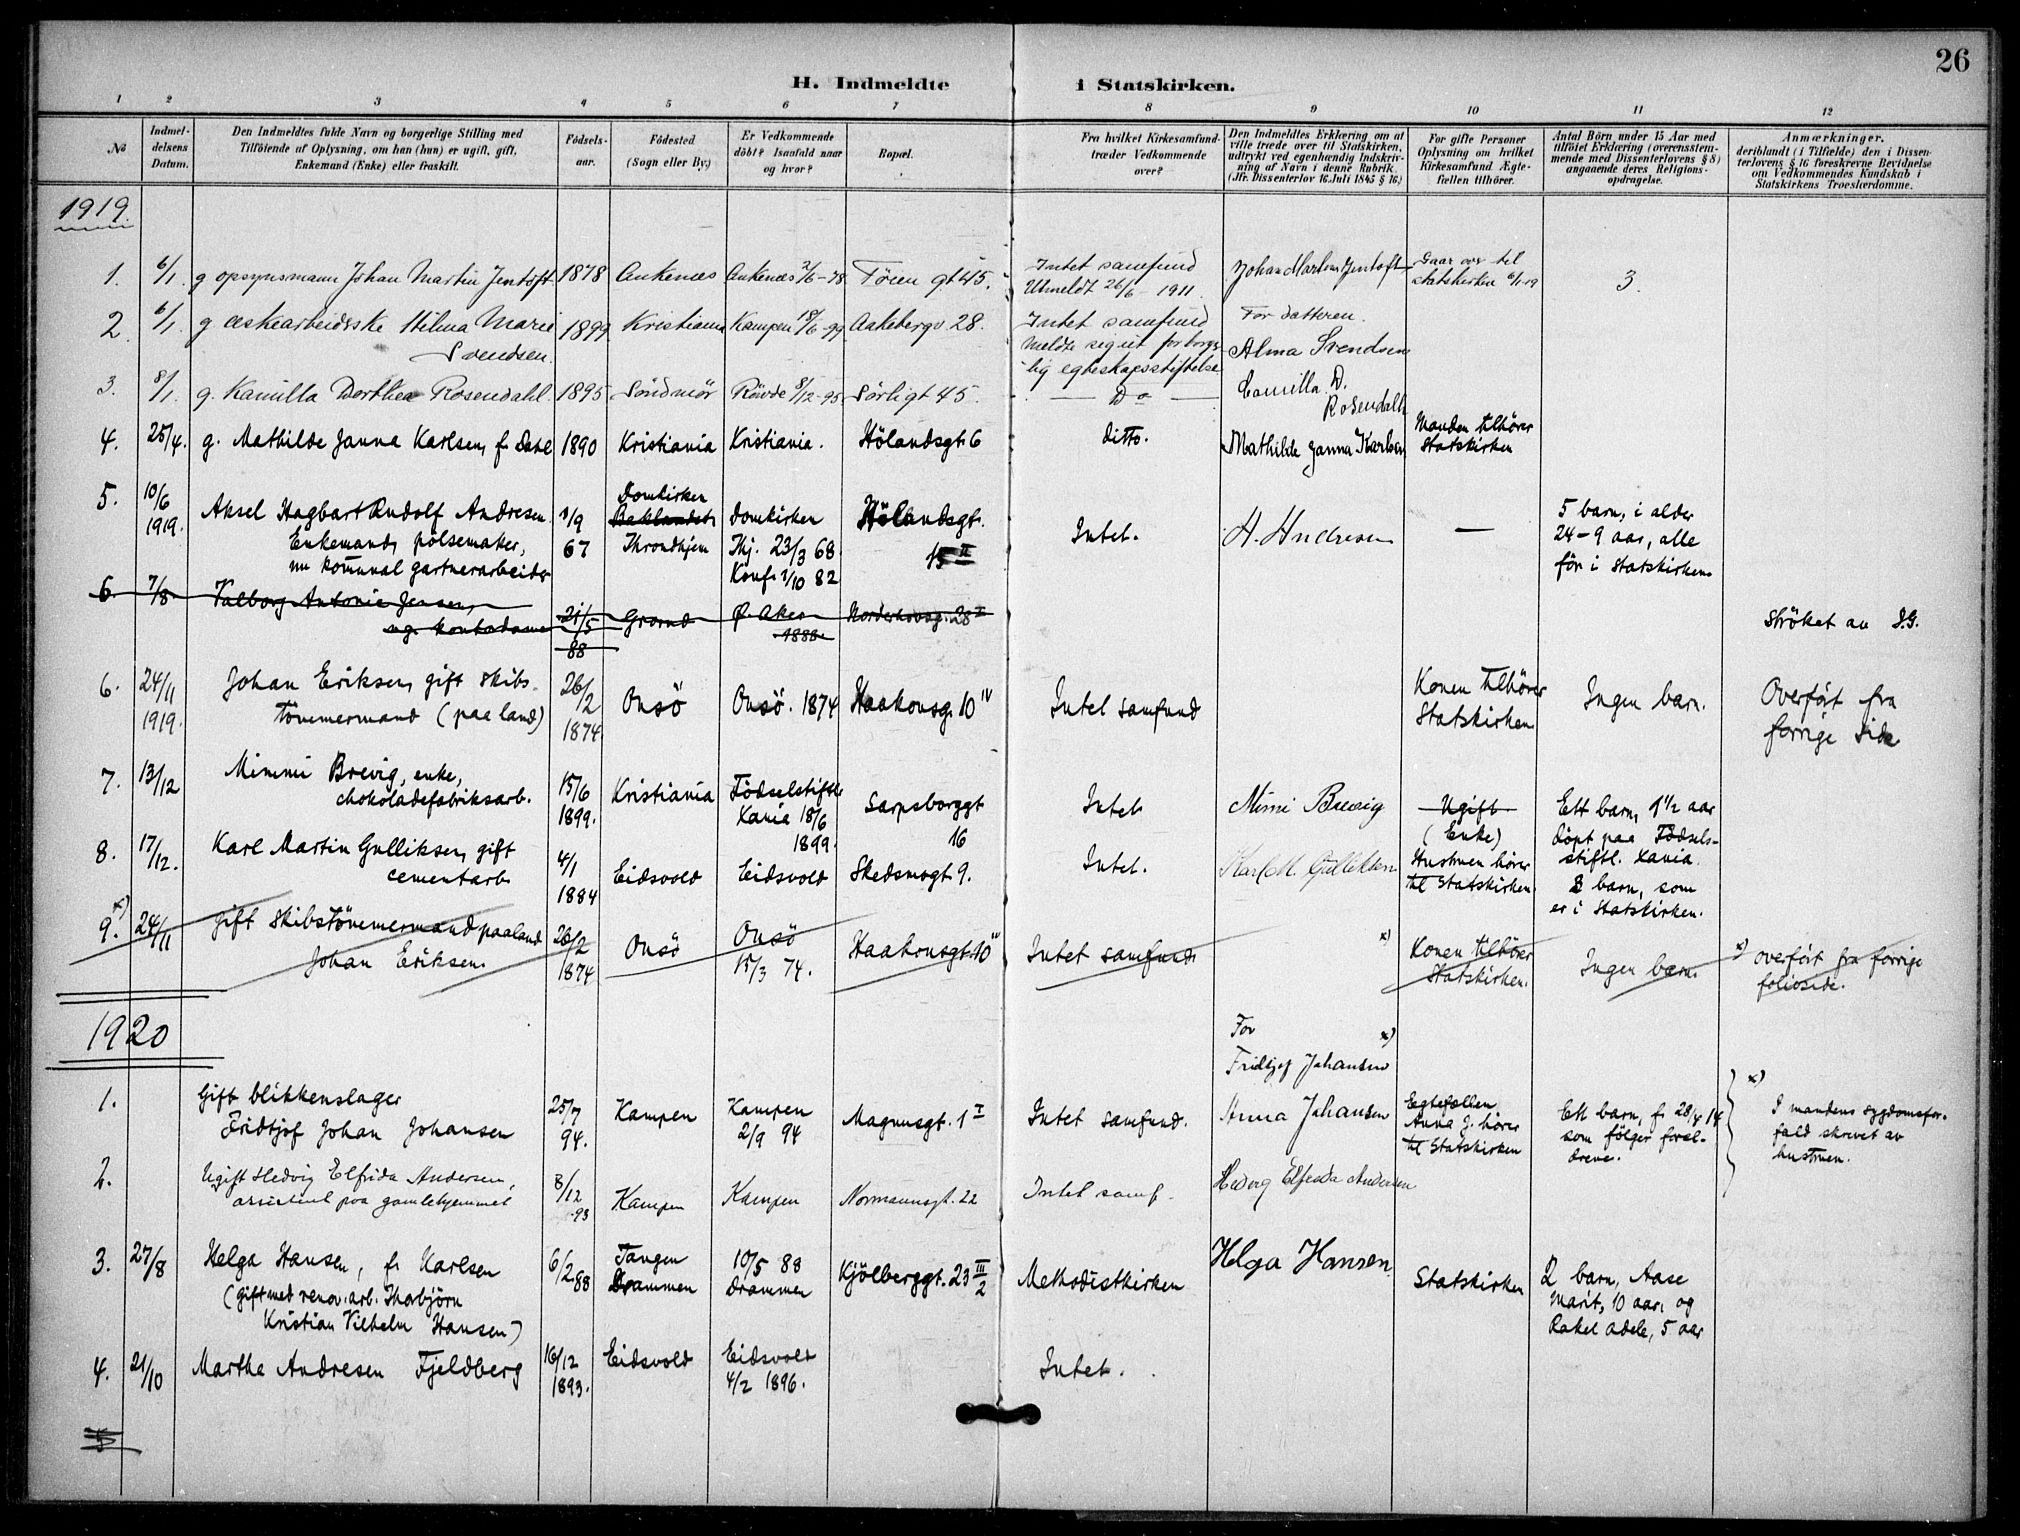 26
H. Indmeldte i Statskirken.
1 2 3 4 5 6 7 8 9 10 11 12
No
Indmeldelsens Datum.
Den Indmeldtes fulde Navn og borgerlige Stilling med
Tilföiende af Oplysning, om han (hun) er ugift, gift,
Enkemand (Enke) eller fraskilt.
Födsels-
aar.
Födested
(Sogn eller By.)
Er Vedkommende
döbt? Isaafald naar
og hvor?
Bopæl.
Fra hvilket Kirkesamfund
træder Vedkommende
over?
Den Indmeldtes Erklæring om at
ville træde over til Statskirken,
udtrykt ved egenhændig Indskriv-
ning af Navn i denne Rubrik.
(Jfr. Dissenterlov 16 Juli 1845 § 16)
For gifte Personer
Oplysning om hvilket
Kirkesamfund Ægte-
fællen tilhörer.
Antal Börn under 15 Aar med
tilföiet Erklæring (overensstem-
mende med Dissenterlovens § 8)
angaaende deres Religions-
opdragelse.
Anmærkninger.
deriblandt (i Tilfælde) den i Dissen-
terlovens § 16 foreskrevne Bevidnelse
om Vedkommendes Kundskab i
Statskirkens Troeslærdomme.
1919.
1. 6/1. g opsynsmann Johan Martin Jentoft 1878 Ankenæs Ankenæs 2/6-78 Töien gt 45.
Intet samfund
Utmeldt 26/6 - 1911.
Johan Martin Jentoft
Gaar over til
statskirken 6/1-19
3.
2. 6/1. g æskearbeiderske Hilma Marie
Svendsen.
1899 Kristiania Kampen 18/6-99 Aakebergv 28.
Intet samfund
meldte sig ut for borger-
lig egteskapsstiftelse
For datteren.
Alma Svendsen
3. 8/1. g. Kamilla Dorthea Rosendahl. 1895 Söndmör Rövde 8/12-95 Sörligt 45.
— Do —
Camilla D.
Rosendahl
4. 25/4. g. Mathilde Janna Karlsen, f. Dahl 1890 Kristiania Kristiania. Hölandsgt. 6
ditto.
Mathilde Janna Karlsen
Manden tilhörer
Statskirken
5. 10/6
1919.
Aksel Hagbart Rudolf Andresen
Enkemand, pölsemaker,
nu kommunal gartnerarbeider
1/9
67
Domkirken
Baklandet,
Throndhjem
Domkirken
Thj. 23/3 68.
Konf. 1/10 82
Hölandsgt.
15 II
Intet.
H. Andresen
—
5 barn, i alder
24-9 aar, alle
för i Statskirken.
6. 7/8 Valborg Antonie Jensen,
ug. kontordame
21/5
88
Grorud
Ø. Aker
1888.
Norderhovsg. 28 I
Ströket av S.G.
6. 24/11
1919.
Johan Eriksen, gift skibs-
tömmermand (paa land)
26/2
1874
Onsö
Onsö. 1874
Haakonsg. 10 IV
Intet samfund
Konen tilhörer
Statskirken.
Ingen barn.
Overfört fra
forrige side
7. 13/12
Mimmi Brevig, enke,
chokoladefabriksarb.
15/6
1899.
Kristiania
Födselstiftl.
Kania 18/6
1899.
Sarpsborggt
16
Intet
Mimi Brevig
Ugift
(Enke)
Ett barn, 1 1/2 aar
döpt paa Födsels-
stiftl. Kania.
8. 17/12.
Karl Martin Gulliksen, gift
cementarb.
4/1
1884
Eidsvold
Eidsvold
Skedsmogt. 9.
Intet.
Karl M. Gulliksen
Hustruen hörer
til Statskirken.
8 barn, som
er i Statskirken.
9. x) 24/11
Gift skibstömmermand paa land
Johan Eriksen.
26/2
1874
Onsö
Onsö
15/3 74.
Haakonsgt. 10 IV
Intet samfund.
x)
Konen tilhörer
Statskirken.
Ingen barn.
x) overfört fra forrige
folioside.
1920
1.
Gift blikkenslager
Fridtjof Johan Johansen
25/7
94.
Kampen
Kampen
2/9 94
Magnusgt. 1 I
Intet samfund.
For x)
Fridtjof Johansen
Anna Johansen
Egtefællen
Anna J. hörer
til Statskirken
Ett barn, f. 28/4 14
som fölger foræl-
drene.
x)
I mandens sygdomsfor-
fald skrevet av
hustruen.
2.
Ugift Hedvig Elfrida Andersen,
assistent paa gamlehjemmet
3/12
.93
Kampen
Kampen
Normannsgt. 22
Intet samf.
Hedvig Elfrida Andersen
3. 27/8
Helga Hansen, f. Karlsen
(gift med renov. arb. Thorbjörn
Kristian Vilhelm Hansen)
6/2 88
Tangen
Drammen
10/5 88
Drammen
Kjölberggt. 23 III/2
Methodistkirken
Helga Hansen.
Statskirken
2 barn, Aase
Marit, 10 aar, og
Rakel Adele, 5 aar
4. 21/10
Martha Andresen Fjeldberg
16/12
1893.
Eidsvold
Eidsvold
4/2 1896.
Intet.
5